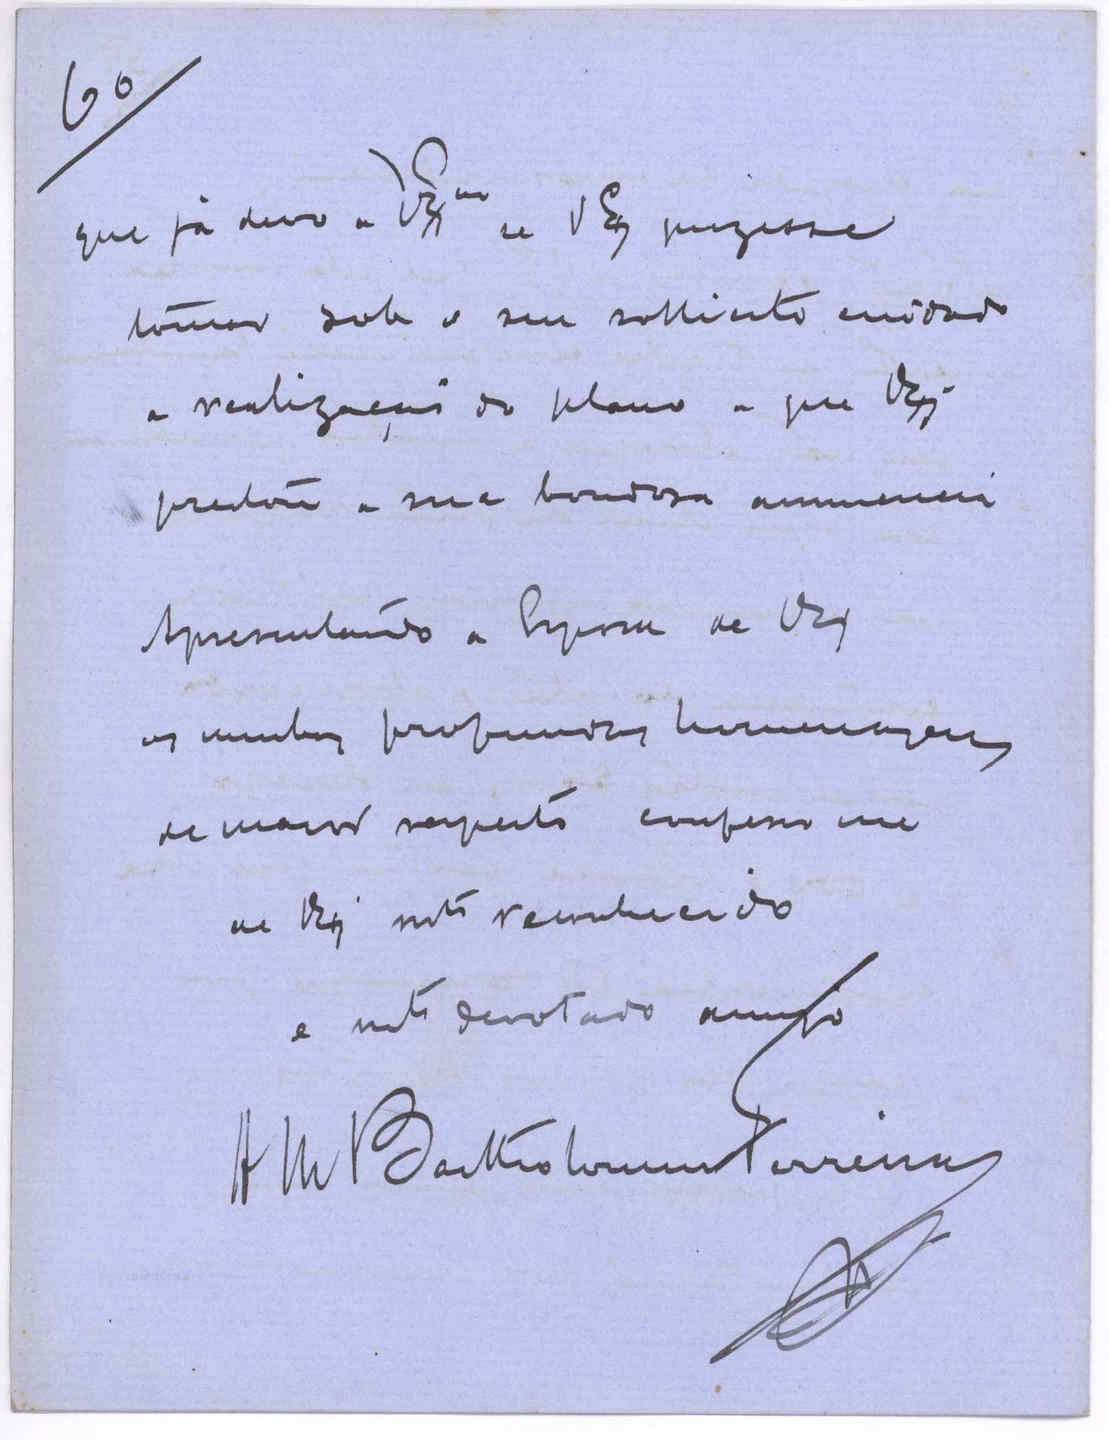 60
que já devo a VEx.cia se VEx quizesse
tomar sob o seu sollicito cuidado
a realização do plano a que VEx.
prestou a sua bondosa annuencia
Apresentando a Esposa de VEx
as minhas profundas homenagens
de maior respeito confesso me
de VEx mto reconhecido
e mto devotado amigo
A M Bartholomeu Ferreira